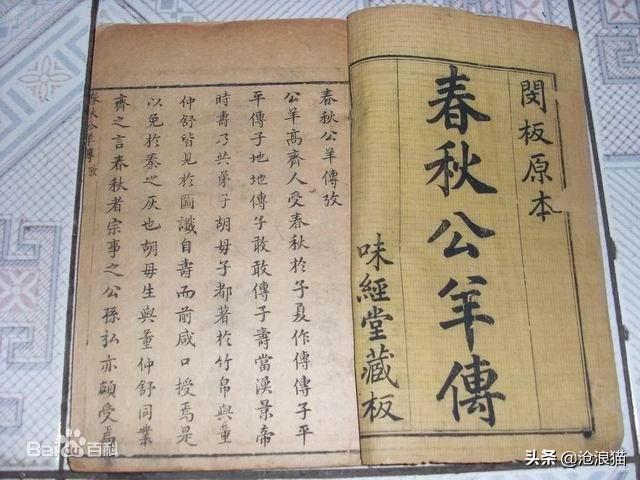 閔板原本
春秋公羊傳
味經堂藏板
春秋公羊傳攷
公羊髙齊人受春秋於子夏作傳傳子平
平傳子地地傳子敢敢傳子壽當漢景帝
時壽乃共弟子胡毋子都著於竹帛與董
仲舒皆見於圖讖自壽而前咸口授焉是
以免於秦之灰也胡毋生與董仲舒同業
齊之言春秋者宗事之公孫弘亦頗受焉
春秋公羊傳 攷
Bai百科
头条 @沧浪猫